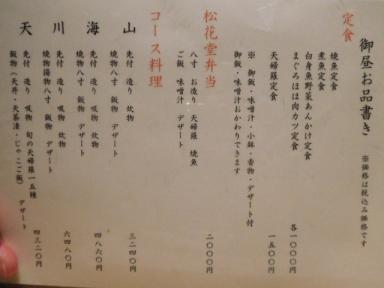 御昼お品書き
※価格は税込み価格です
定食
焼魚定食
煮魚定食
白身魚野菜あんかけ定食
まぐろほほ肉カツ定食
各一〇〇〇円
天婦羅定食
一五〇〇円
※御飯・味噌汁・小鉢・香物・デザート付
御飯・味噌汁おかわりできます
松花堂弁当
八寸 お造り 天婦羅 焼魚
ご飯 味噌汁 デザート
二〇〇〇円
コース料理
山
先付 造り 炊物
焼物八寸 飯物 デザート
三二四〇円
海
先付 造り 吸物 炊物
焼物八寸 飯物 デザート
四八六〇円
川
先付 造り 吸物 炊物
焼物揚物八寸 飯物 デザート
六四八〇円
天
先付 造り 吸物 旬の天婦羅一五種
飯物(天丼・天茶漬・じゃこご飯) デザート
四三二〇円